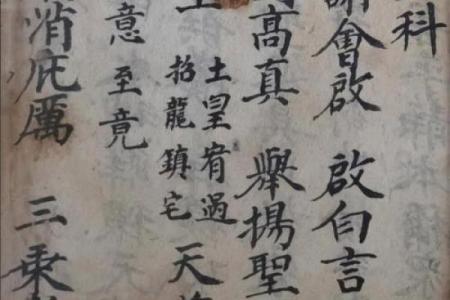 科
會啟 啟白言
高真 舉揚聖
土皇宥過
招龍鎮宅 天
意至竟
消庇厲 三乘